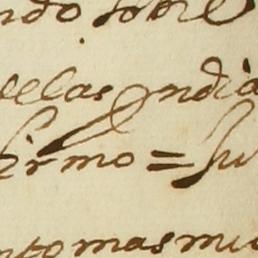 ndo sobre
ellas yndia
firmo = Su
nto mas mu